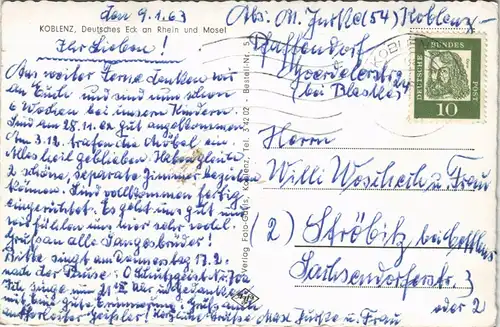 den 9.1.63
KOBLENZ, Deutsches Eck an Rhein und Mosel
Ihr Lieben!
Aus weiter Ferne denken wir
an Euch und sind nun schon
6 Wochen bei unseren Kindern
Sind am 28.11.62 gut angekommen
Am 3.12. trafen die Möbel ein
Alles heil geblieben. Haben gleich
2 schöne, separate Zimmer beziehen
können. Sind vollkommen fertig
eingerichtet. Es geht uns gut und
wir fühlen uns sehr wohl.
Gruß an alle Sangesbrüder!
Bitte singt am Donnerstag 17.2.
nach der Pause: O Schutzgeist Nr.
Ich singe um 21 Uhr in Gedanken
mit Euch
Herzliche Grüße Max Jurke u. Frau
Verlag Foto-Gauls, Koblenz, Tel. Bestell-Nr. 5
Abs. M. Jurke (54) Koblenz-
Pfaffendorf
(bei Blestle)
DEUTSCHE BUNDESPOST
10
Herrn
Willi Woscherch u. Frau
(2) Ströbitz, bei Cottbus
Sachsendorferstr. 3
oder 2